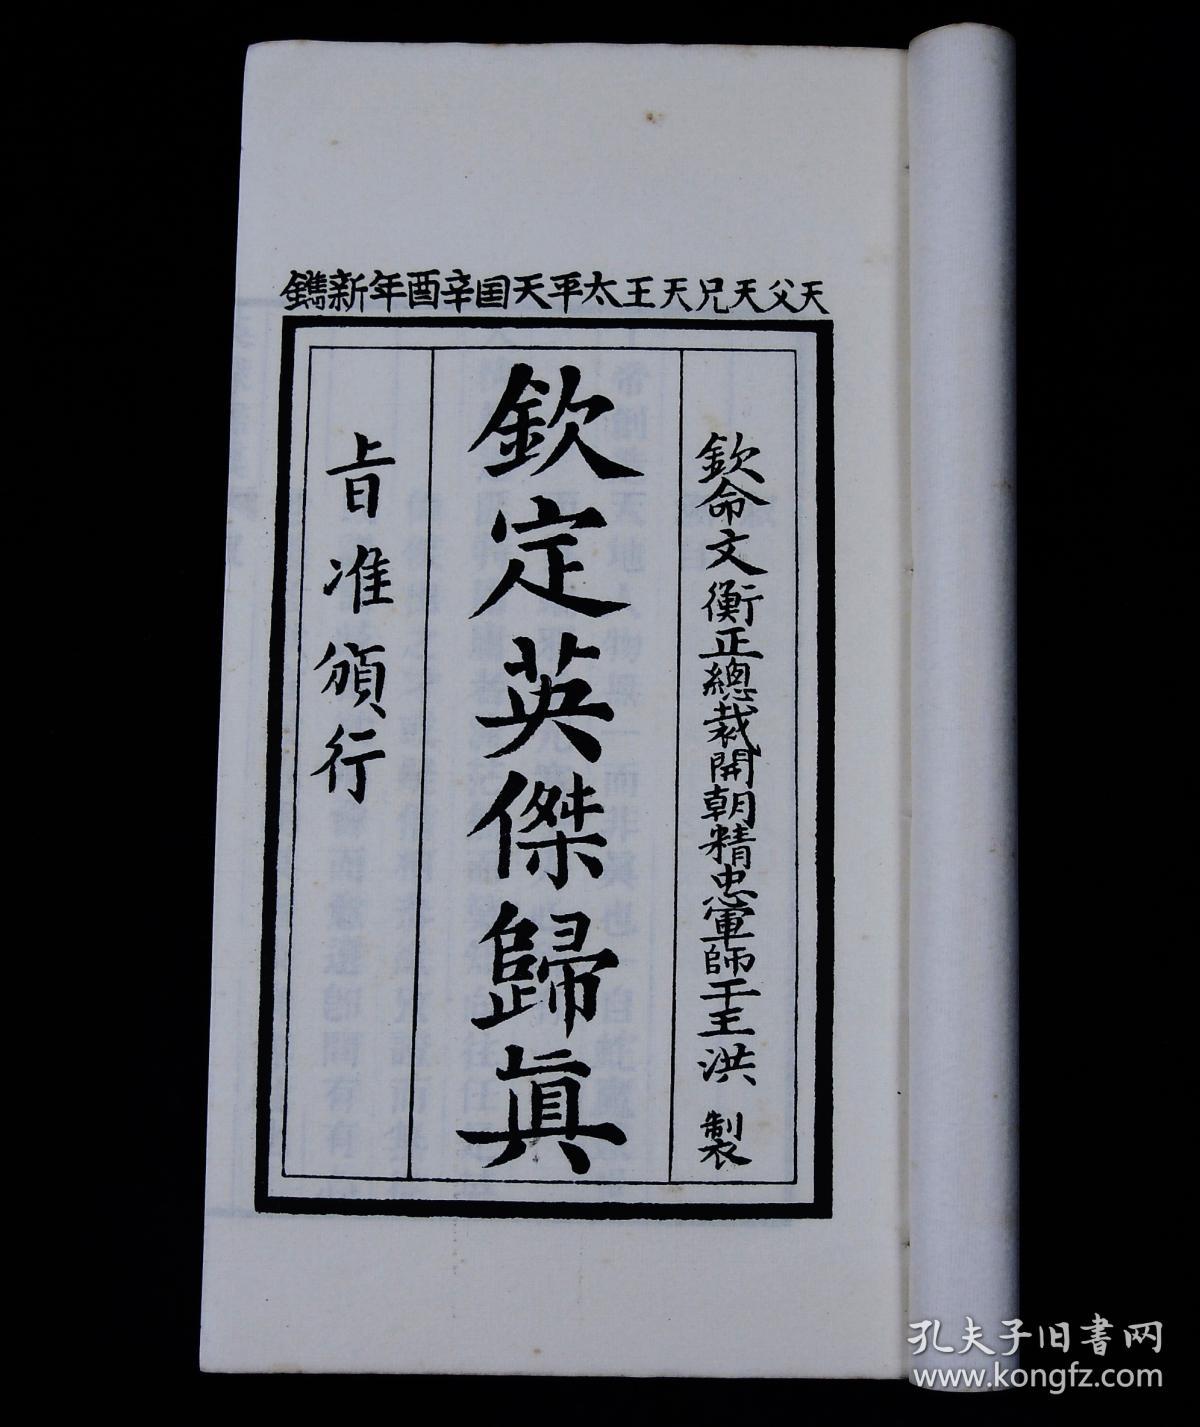 天父天兄天王太平天囯辛酉年新鐫
欽命文衡正總裁開朝精忠軍師干王洪 製
欽定英傑歸眞
旨准頒行
孔夫子旧书网
www.kongfz.com